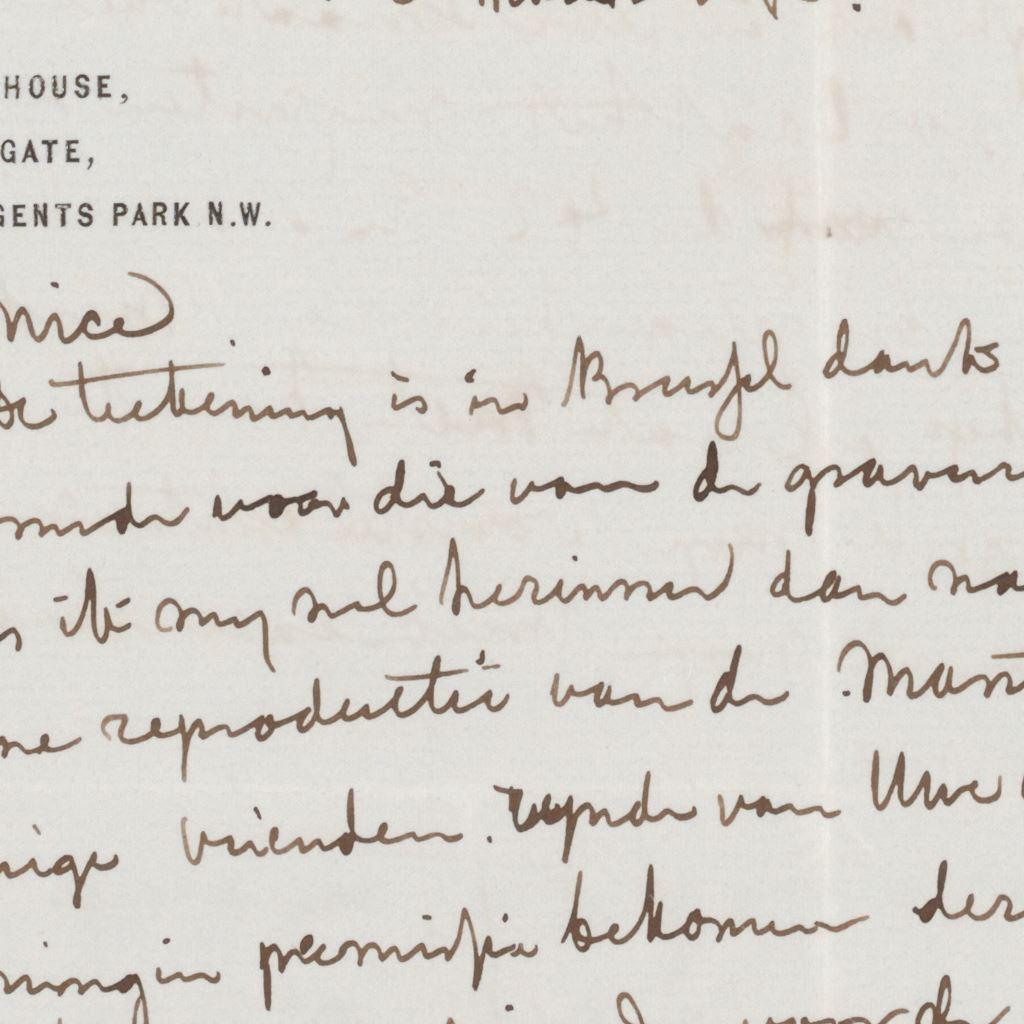 HOUSE,
GATE,
GENTS PARK N.W.
nice
De teekening is in Brussel dank
voor die van de gravure
ik my wel herinner dan
reproductie van de
nige vrienden. zynde van Uwe
permissie bekomen der